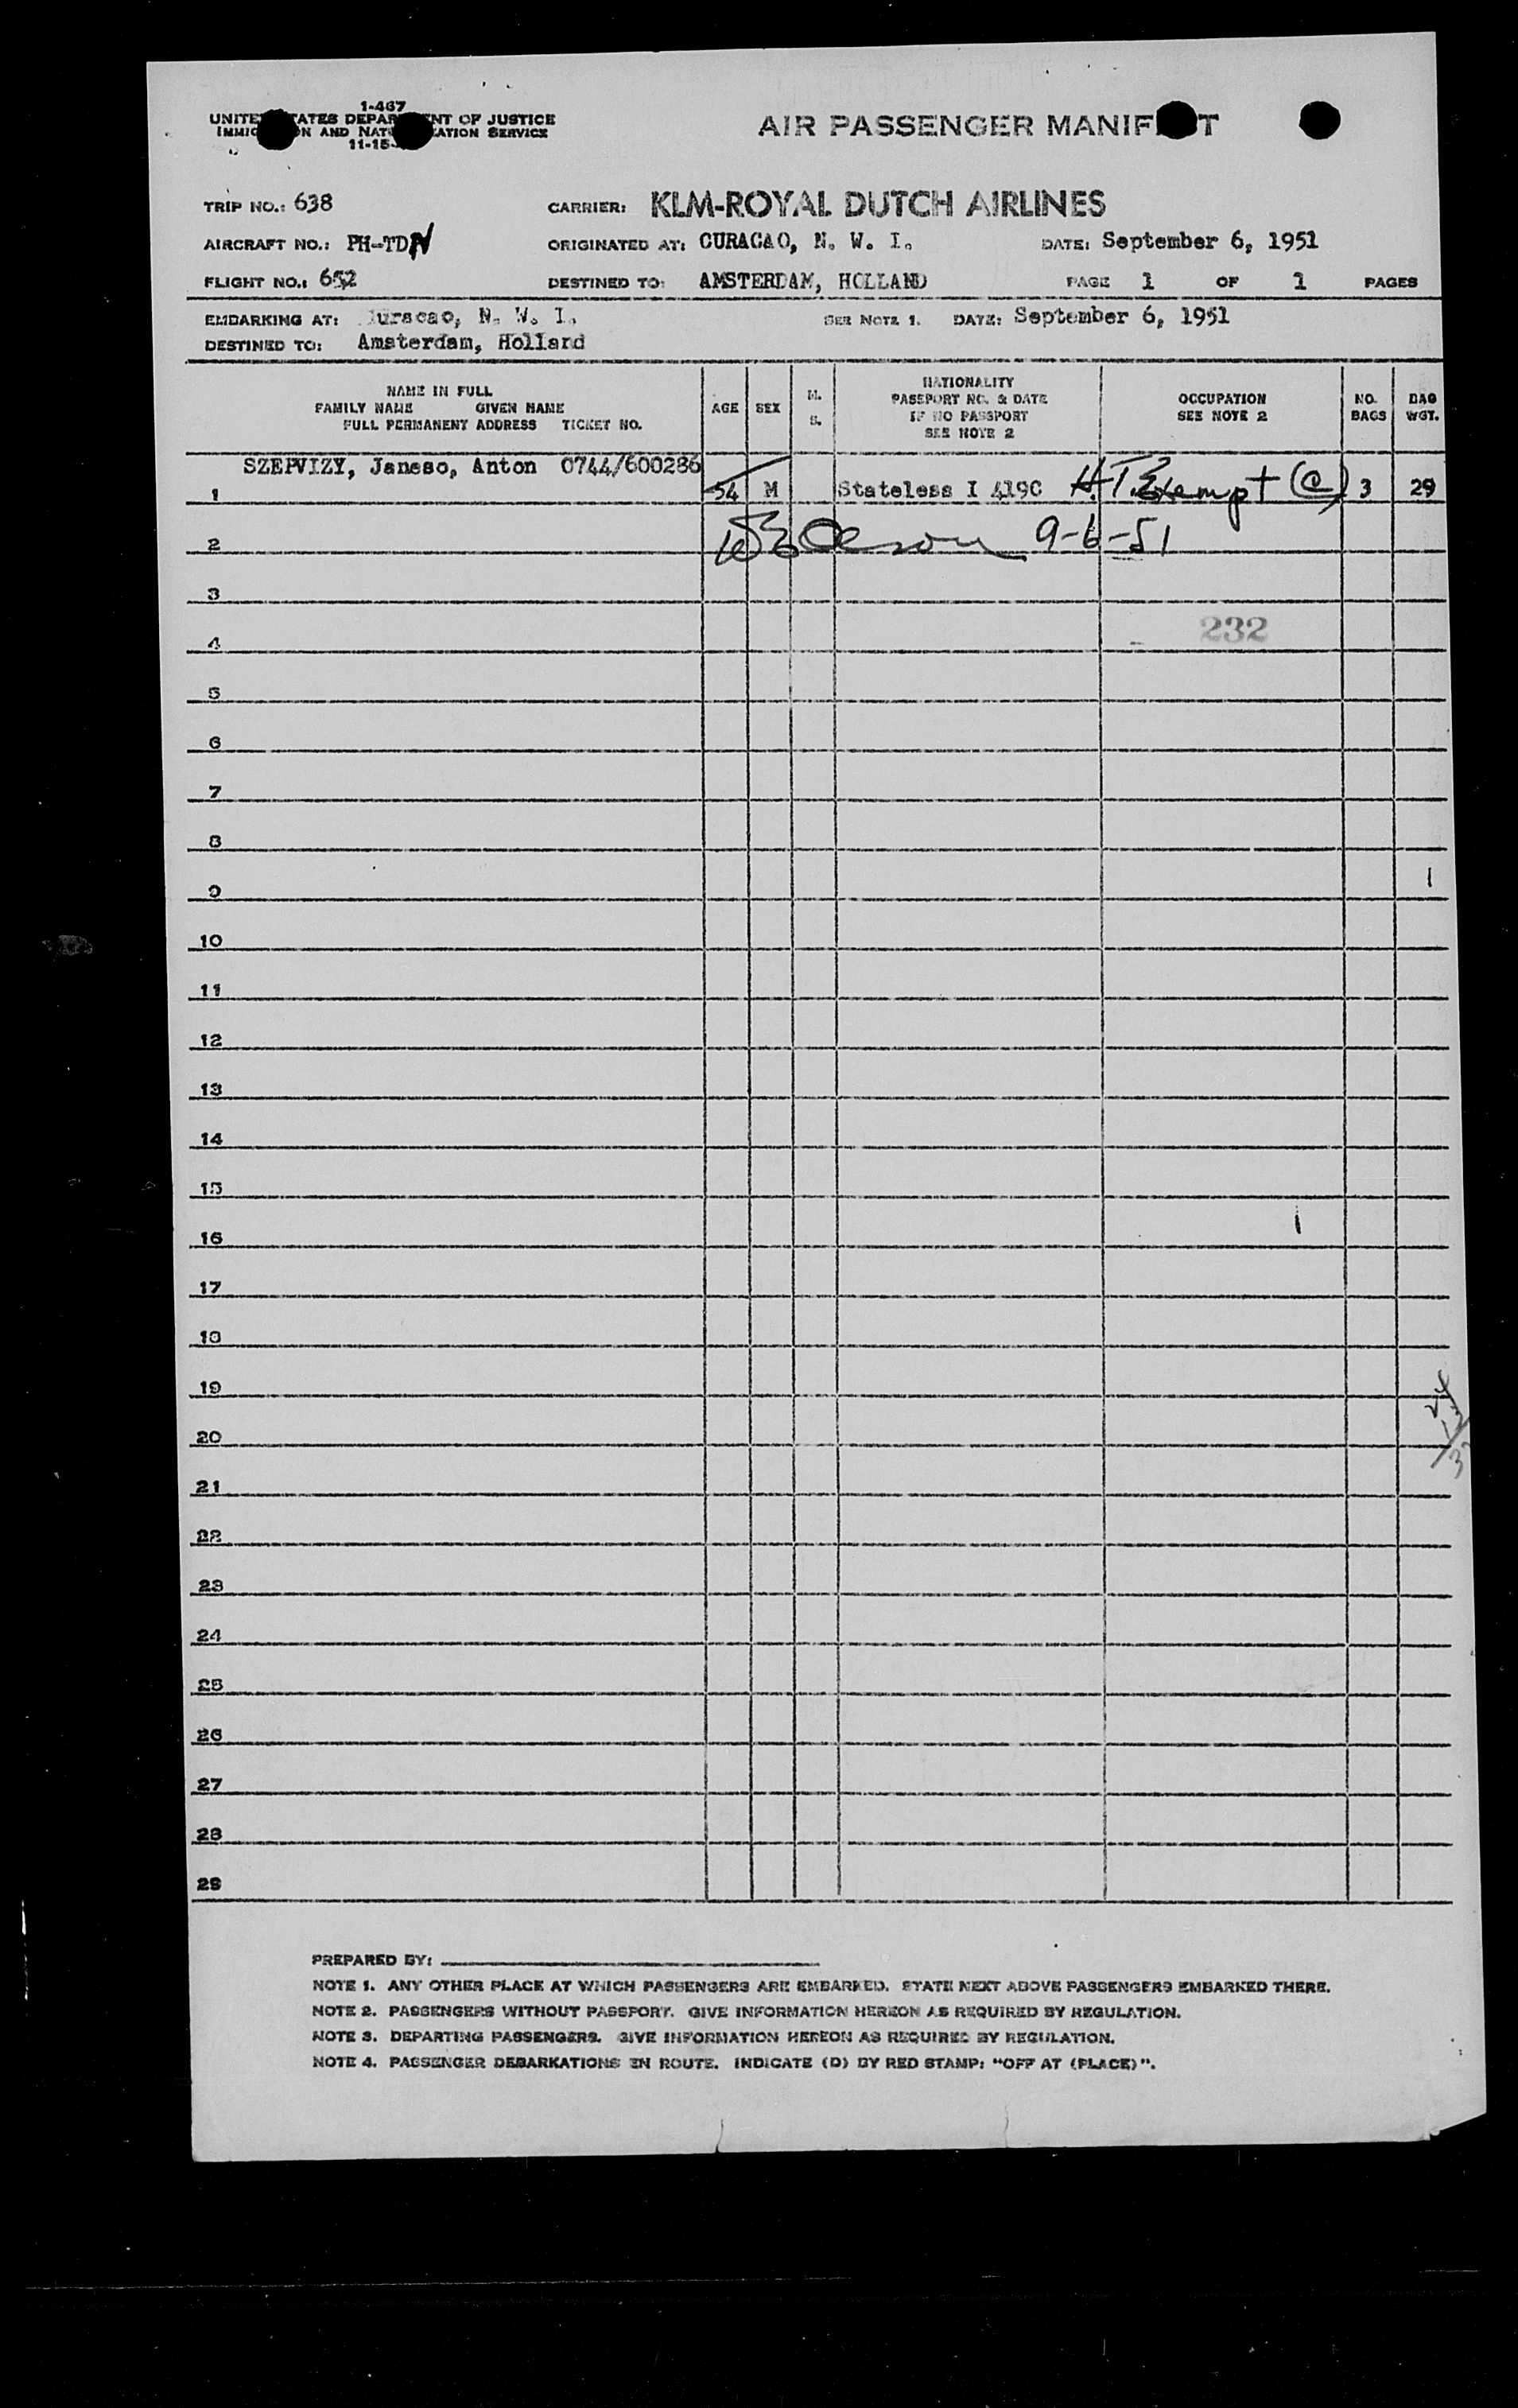 1-467
UNITED STATES DEPARTMENT OF JUSTICE
IMMIGRATION AND NATURALIZATION SERVICE
11-15-
AIR PASSENGER MANIFEST
TRIP NO.: 638
CARRIER: KLM-ROYAL DUTCH AIRLINES
AIRCRAFT NO.: PH-TDN
ORIGINATED AT: CURACAO, N. W. I.
DATE: September 6, 1951
FLIGHT NO.: 652
DESTINED TO: AMSTERDAM, HOLLAND
PAGE 1 OF 1 PAGES
EMBARKING AT: Curacao, N. W. I.
SEE NOTE 1. DATE: September 6, 1951
DESTINED TO: Amsterdam, Holland
NAME IN FULL
FAMILY NAME GIVEN NAME
FULL PERMANENT ADDRESS TICKET NO.
AGE
SEX
M.
S.
NATIONALITY
PASSPORT NO. & DATE
IF NO PASSPORT
SEE NOTE 2
OCCUPATION
SEE NOTE 2
NO.
BAGS
BAG
WGT.
SZEPVIZY, Janeso, Anton 0744/600286
1 54 M Stateless I 419C H.T. Exempt (C) 3 29
2 9-6-51
3
4 232
5
6
7
8
9
10
11
12
13
14
15
16
17
18
19
20
21
22
23
24
25
26
27
28
29
PREPARED BY:
NOTE 1. ANY OTHER PLACE AT WHICH PASSENGERS ARE EMBARKED. STATE NEXT ABOVE PASSENGERS EMBARKED THERE.
NOTE 2. PASSENGERS WITHOUT PASSPORT. GIVE INFORMATION HEREON AS REQUIRED BY REGULATION.
NOTE 3. DEPARTING PASSENGERS. GIVE INFORMATION HEREON AS REQUIRED BY REGULATION.
NOTE 4. PASSENGER DEBARKATIONS EN ROUTE. INDICATE (D) BY RED STAMP: "OFF AT (PLACE)".